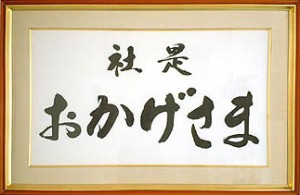 社是
おかげさま